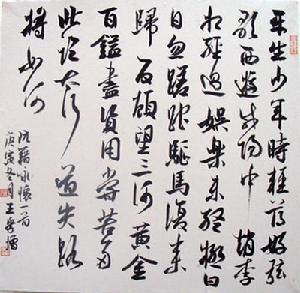 平生少年時輕薄好弦
歌西遊咸陽中趙李
相經過娛樂未終極白
日忽蹉跎驅馬復來
歸反顧望三河黃金
百鎰盡資用常苦多
北臨太行道失路
將如何
阮籍詠懷一首
庚寅冬月王